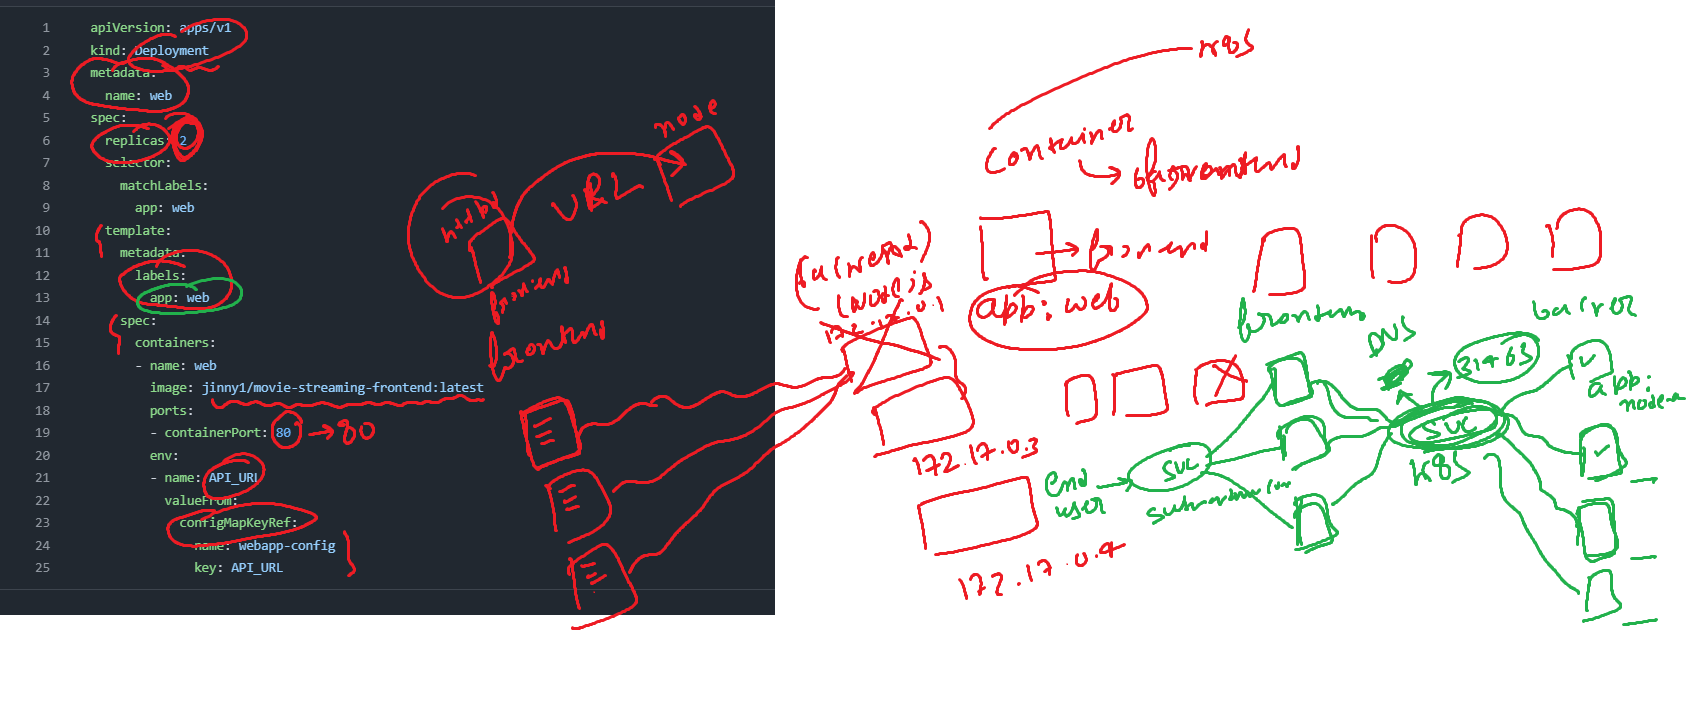 1 apiVersion: apps/v1
2 kind: Deployment
3 metadata:
4 name: web
5 spec:
6 replicas: 2
7 selector:
8 matchLabels:
9 app: web
10 template:
11 metadata:
12 labels:
13 app: web
14 spec:
15 containers:
16 - name: web
17 image: jinny1/movie-streaming-frontend:latest
18 ports:
19 - containerPort: 80
20 env:
21 - name: API_URL
22 valueFrom:
23 configMapKeyRef:
24 name: webapp-config
25 key: API_URL
80
httpd
URL
node
frontend
k8s
container
frontend
app: web
172.17.0.1
172.17.0.3
172.17.0.4
end
user
svc
frontend
DNS
31463
svc
k8s
app: